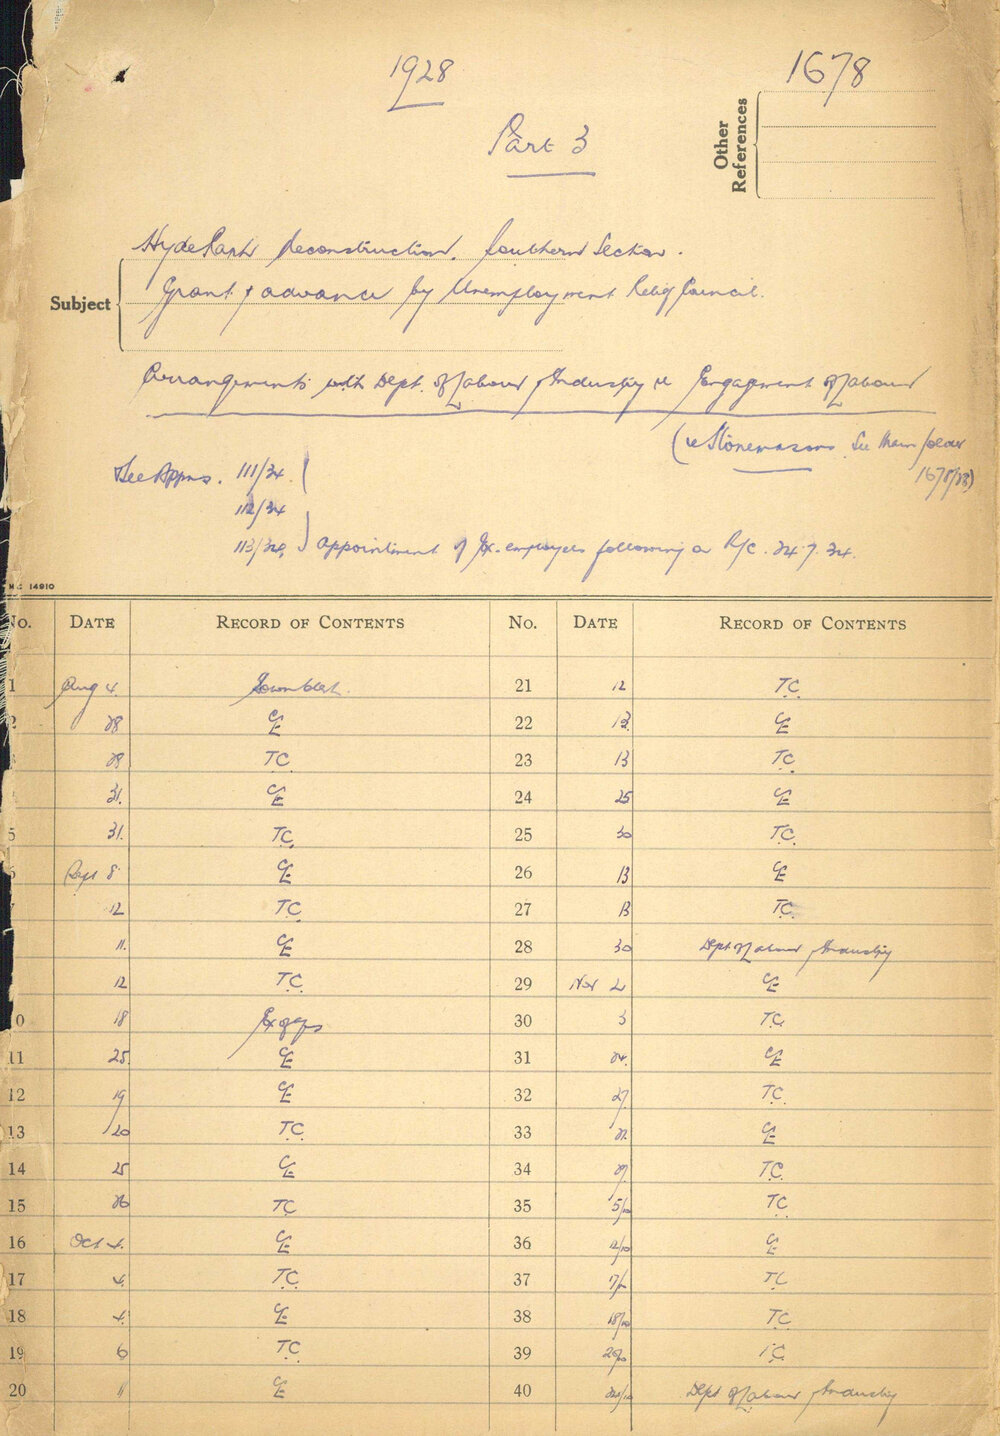 1928
1678
Part 3
Other
References
Hyde Park Reconstruction. Southern Section.
Subject
Grant & advance by Unemployment Relief Council.
Arrangements with Dept. of Labour & Industry re Engagement of Labour
(re Stonemasons. See Main folder
1678/28)
See Appns. 111/34
112/34
113/34 appointment of Ex. employees following a R/C. 24.7.34.
14910
No. DATE RECORD OF CONTENTS No. DATE RECORD OF CONTENTS
1 Aug 4. 21 12 T.C.
2 28 CE 22 12 CE
28 T.C. 23 13 T.C.
31. CE 24 25 CE
5 31. T.C. 25 30 T.C.
Sept 8 CE 26 13 CE
12 T.C. 27 13 T.C.
11. CE 28 30 Dept of Labour & Industry
12 T.C. 29 Nov 2 CE
10 18 30 3 T.C.
11 25 CE 31 24. CE
12 19 CE 32 27. T.C.
13 20 T.C. 33 CE
14 25 CE 34 T.C.
15 26 T.C. 35 T.C.
16 Oct 4. CE 36 CE
17 4. T.C. 37 T.C.
18 4. CE 38 T.C.
19 6 T.C. 39 T.C.
20 11 CE 40 Dept of Labour & Industry